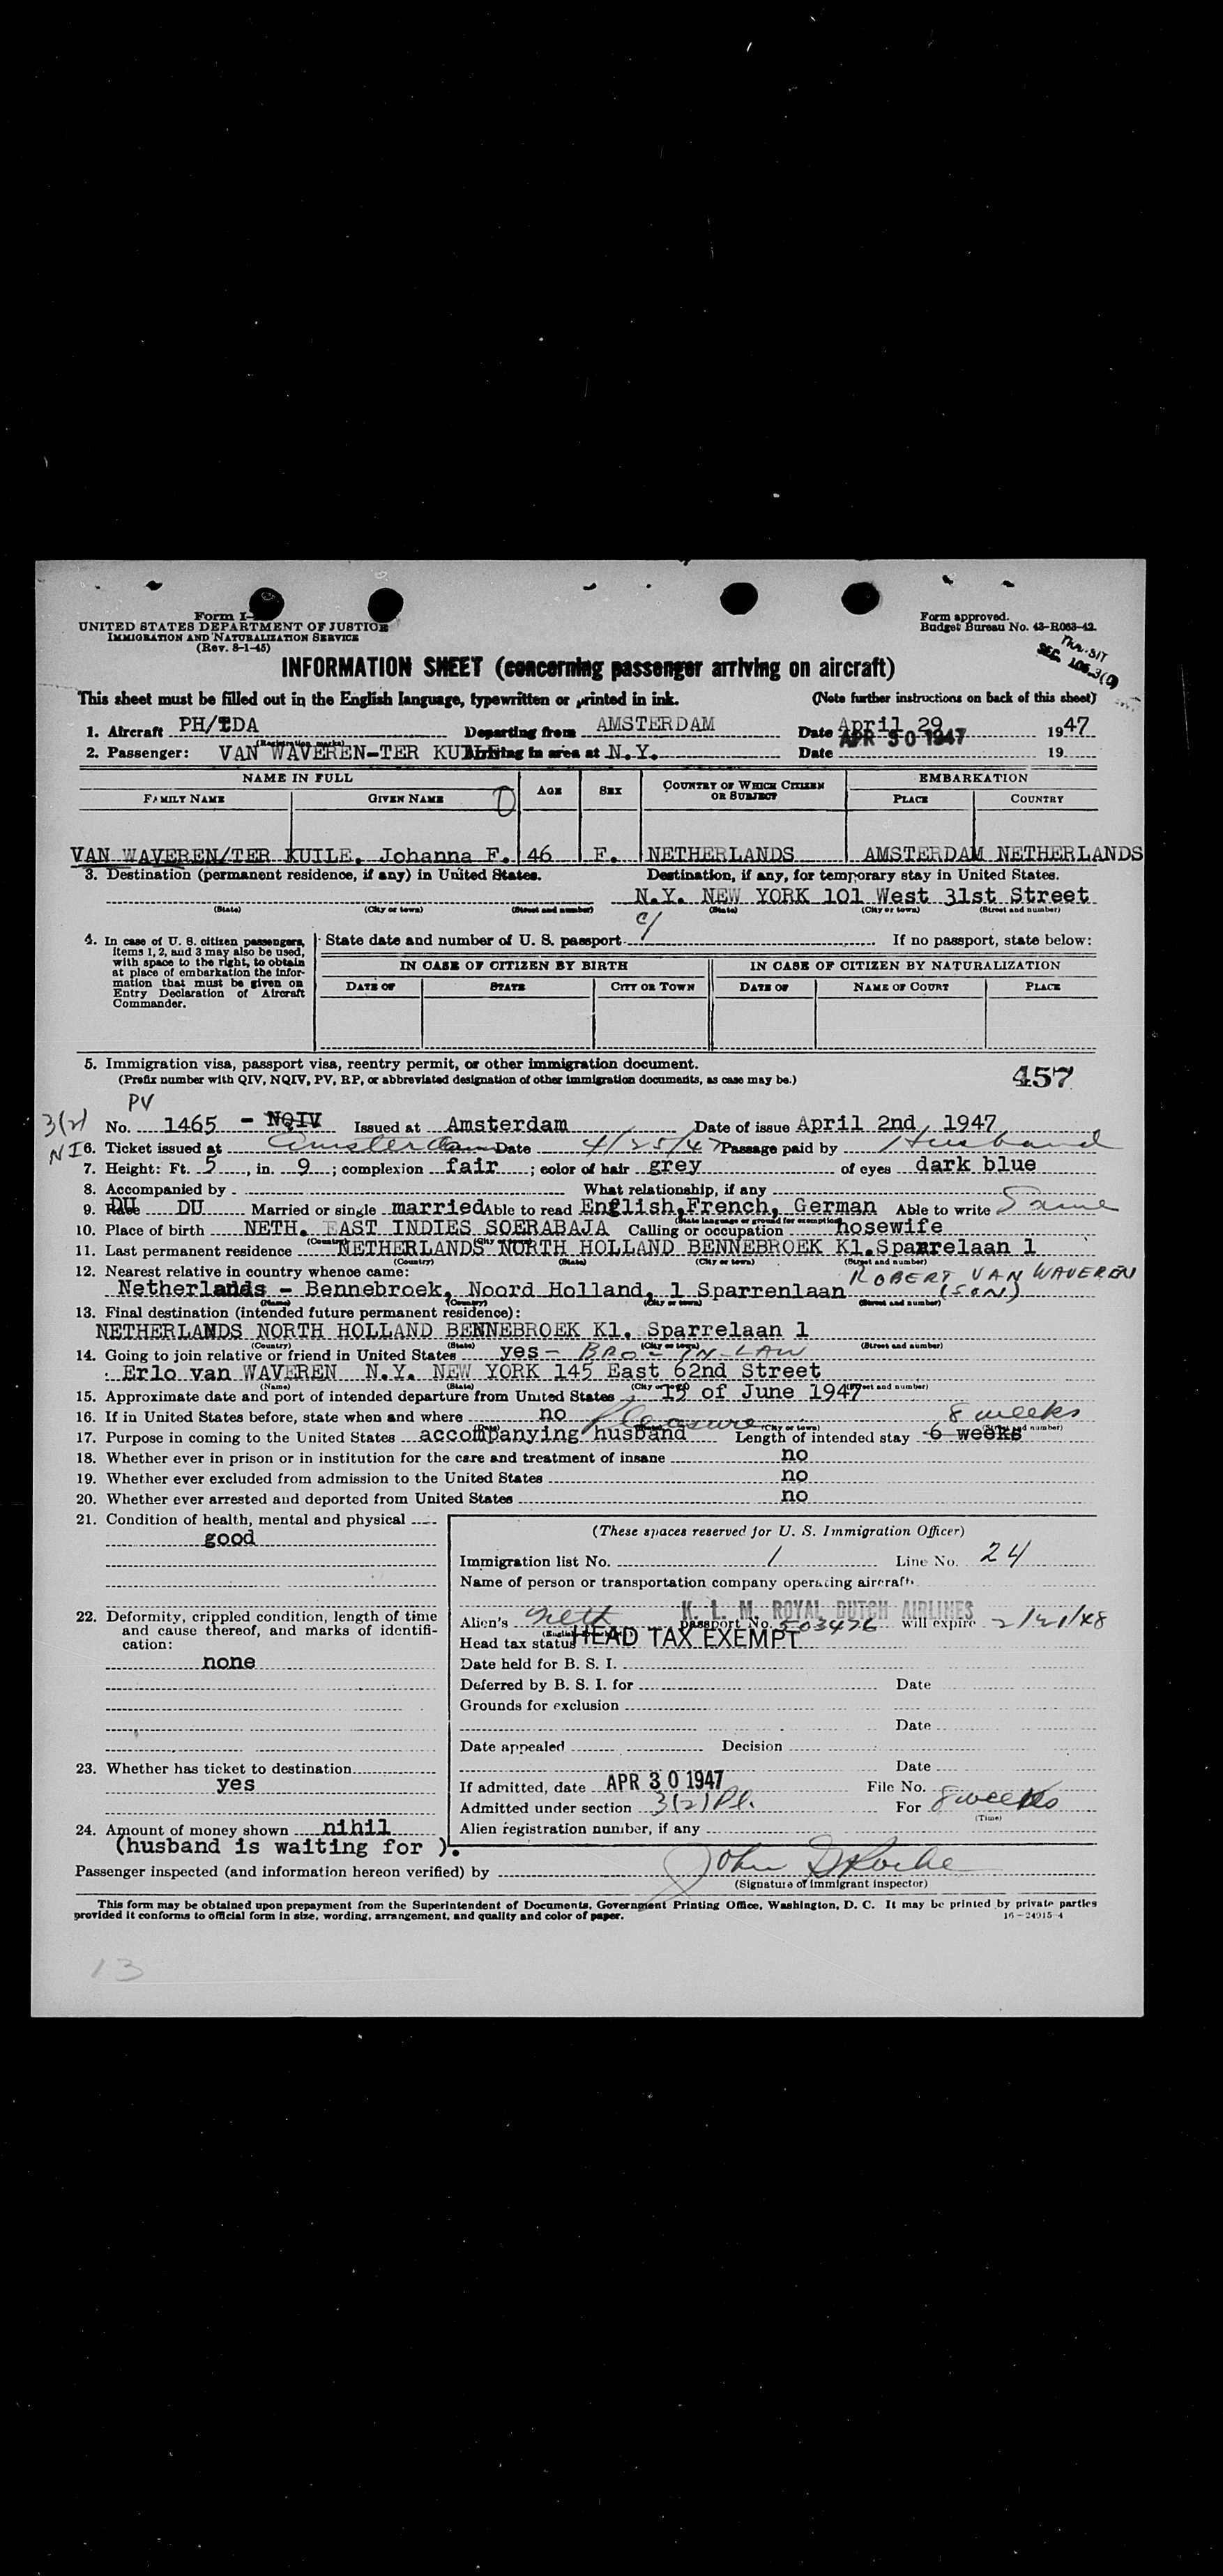 Form I-
UNITED STATES DEPARTMENT OF JUSTICE
IMMIGRATION AND NATURALIZATION SERVICE
(Rev. 8-1-45)
Form approved.
Budget Bureau No. 43-R063-42.
TRANSIT
SEC. 106.3(
INFORMATION SHEET (concerning passenger arriving on aircraft)
This sheet must be filled out in the English language, typewritten or printed in ink. (Note further instructions on back of this sheet)
1. Aircraft PH/TDA Departing from AMSTERDAM Date April 29 1947
(Registration marks) APR 30 1947
2. Passenger: VAN WAVEREN-TER KUILE Arriving in area at N.Y. Date 19
NAME IN FULL AGE SEX COUNTRY OF WHICH CITIZEN OR SUBJECT EMBARKATION
FAMILY NAME GIVEN NAME PLACE COUNTRY
VAN WAVEREN/TER KUILE, Johanna F. 46 F. NETHERLANDS AMSTERDAM NETHERLANDS
3. Destination (permanent residence, if any) in United States. Destination, if any, for temporary stay in United States.
N.Y. NEW YORK 101 West 31st Street
(State) (City or town) (Street and number) (State) (City or town) (Street and number)
c/
4. In case of U. S. citizen passengers, items 1, 2, and 3 may also be used, with space to the right, to obtain at place of embarkation the information that must be given on Entry Declaration of Aircraft Commander.
State date and number of U. S. passport If no passport, state below:
IN CASE OF CITIZEN BY BIRTH IN CASE OF CITIZEN BY NATURALIZATION
DATE OF STATE CITY OR TOWN DATE OF NAME OF COURT PLACE
5. Immigration visa, passport visa, reentry permit, or other immigration document.
(Prefix number with QIV, NQIV, PV, RP, or abbreviated designation of other immigration documents, as case may be.) 457
PV
3(2) No. 1465 - NQIV Issued at Amsterdam Date of issue April 2nd, 1947
NI 6. Ticket issued at Amsterdam Date 4/25/47 Passage paid by Husband
7. Height: Ft. 5, in. 9; complexion fair; color of hair grey of eyes dark blue
8. Accompanied by What relationship, if any
9. Race DU DU Married or single married Able to read English, French, German Able to write Same
(State language or ground for exemption)
10. Place of birth NETH. EAST INDIES SOERABAJA Calling or occupation hosewife
(Country) (City or town)
11. Last permanent residence NETHERLANDS NORTH HOLLAND BENNEBROEK Kl.Sparrelaan 1
(Country) (State) (City or town) (Street and number)
12. Nearest relative in country whence came: ROBERT VAN WAVEREN
Netherlands - Bennebroek, Noord Holland, 1 Sparrenlaan (SON)
(Name) (Country) (City or town) (Street and number)
13. Final destination (intended future permanent residence):
NETHERLANDS NORTH HOLLAND BENNEBROEK Kl. Sparrelaan 1
(Country) (State) (City or town) (Street and number)
14. Going to join relative or friend in United States yes - BRO-IN-LAW
Erlo van WAVEREN N.Y. NEW YORK 145 East 62nd Street
(Name) (State) (City or town) (Street and number)
15. Approximate date and port of intended departure from United States 15 of June 1947
16. If in United States before, state when and where no
(Date) (City or town) (Street and number)
Pleasure 8 weeks
17. Purpose in coming to the United States accompanying husband Length of intended stay 6 weeks
18. Whether ever in prison or in institution for the care and treatment of insane no
19. Whether ever excluded from admission to the United States no
20. Whether ever arrested and deported from United States no
21. Condition of health, mental and physical
good
22. Deformity, crippled condition, length of time and cause thereof, and marks of identification:
none
23. Whether has ticket to destination
yes
24. Amount of money shown nihil
(husband is waiting for ).
(These spaces reserved for U. S. Immigration Officer)
Immigration list No. 1 Line No. 24
Name of person or transportation company operating aircraft
K. L. M. ROYAL DUTCH AIRLINES
Alien's Neth passport No. 503476 will expire 2/21/48
Head tax status HEAD TAX EXEMPT
Date held for B. S. I.
Deferred by B. S. I. for Date
Grounds for exclusion
Date
Date appealed Decision
Date
If admitted, date APR 30 1947 File No.
Admitted under section 3(2) Pl. For 8 weeks
(Time)
Alien registration number, if any
Passenger inspected (and information hereon verified) by John
(Signature of immigrant inspector)
This form may be obtained upon prepayment from the Superintendent of Documents, Government Printing Office, Washington, D. C. It may be printed by private parties
provided it conforms to official form in size, wording, arrangement, and quality and color of paper. 16-24915-4
13